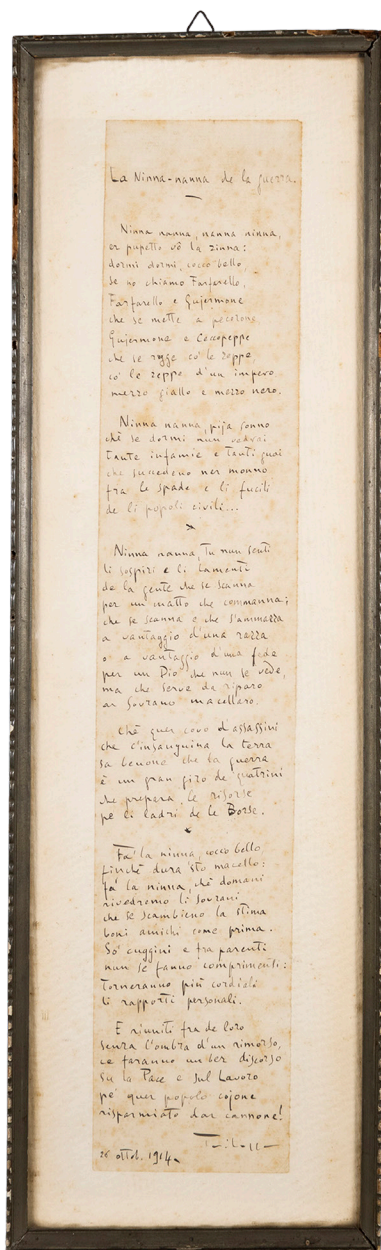 La Ninna-nanna de la guerra.
Ninna nanna, nanna ninna,
er pupetto vô la zinna:
dormi dormi, cocco bello,
se no chiamo Farfarello,
Farfarello e Gujermone
che se mette a pecorone
Gujermone e Ceccopeppe
che se regge co' le zeppe
co' le zeppe d'un impero
mezzo giallo e mezzo nero.
Ninna nanna, pija sonno
chè se dormi nun vedrai
tante infamie e tanti guai
che succedeno ner monno
fra le spade e li fucili
de li popoli civili...
Ninna nanna, tu nun senti
li sospiri e li lamenti
de la gente che se scanna
per un matto che commanna;
che se scanna e che s'ammazza
a vantaggio d'una razza
o a vantaggio d'una fede
per un Dio che nun se vede,
ma che serve da riparo
ar Sovrano macellaro.
Chè quer covo d'assassini
che c'insanguina la terra
sa benone che la guerra
è un gran giro de quatrini
che prepara le risorse
pe li ladri de le Borse.
Fa' la ninna, cocco bello,
finchè dura 'sto macello:
fa' la ninna, chè domani
rivedremo li Sovrani
che se scambieno la stima
boni amichi come prima.
So' cuggini e fra parenti
nun se fanno comprimenti:
torneranno più cordiali
li rapporti personali.
E riuniti fra de loro
senza l'ombra d'un rimorso,
ce faranno un ber discorso
su la Pace e sul Lavoro
pe' quer popolo cojone
risparmiato dar cannone!
Trilussa
26 ottob. 1914